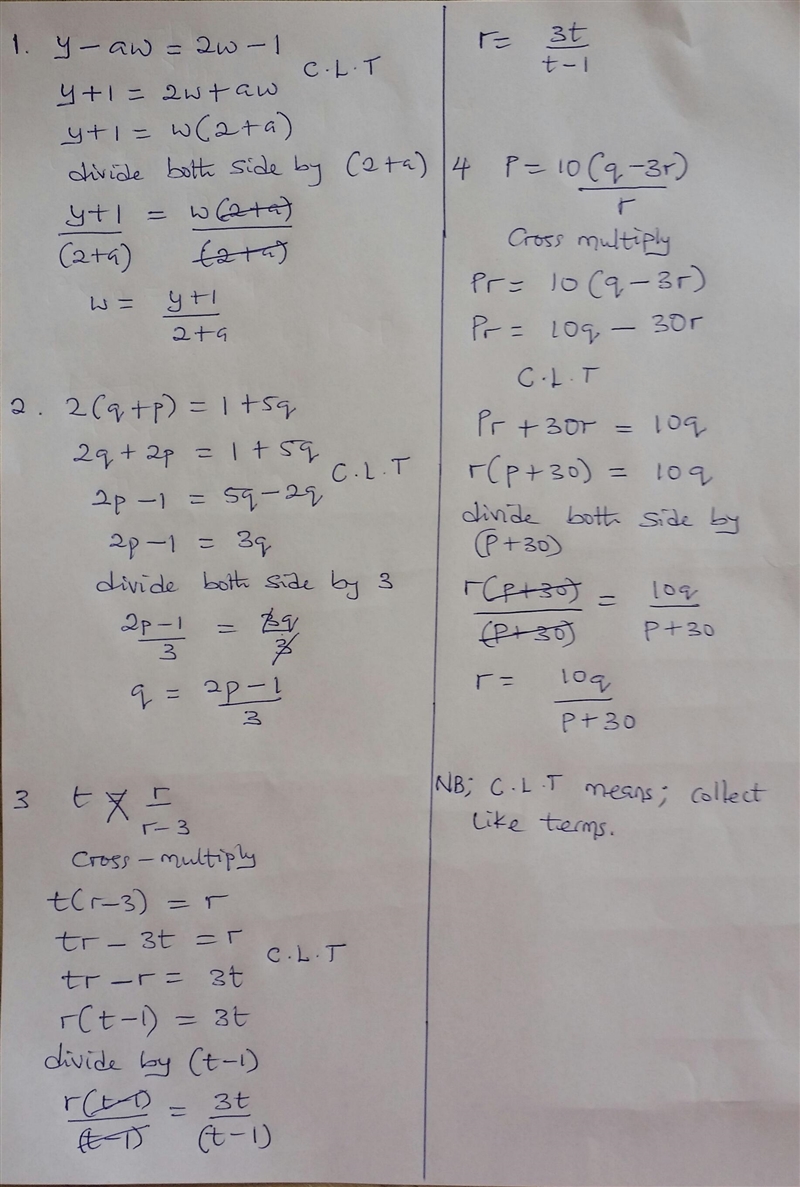 1. y - aw = 2w - 1
C.L.T
y + 1 = 2w + aw
y + 1 = w(2+a)
divide both side by (2+a)
y+1/(2+a) = w(2+a)/(2+a)
w = y+1/2+a
2. 2(q+p) = 1 + 5q
2q + 2p = 1 + 5q
C.L.T
2p - 1 = 5q - 2q
2p - 1 = 3q
divide both side by 3
2p-1/3 = 3q/3
q = 2p-1/3
3 t = r/r-3
Cross-multiply
t(r-3) = r
tr - 3t = r
C.L.T
tr - r = 3t
r(t-1) = 3t
divide by (t-1)
r(t-1)/(t-1) = 3t/(t-1)
r = 3t/t-1
4 P = 10(q-3r)/r
Cross multiply
Pr = 10(q-3r)
Pr = 10q - 30r
C.L.T
Pr + 30r = 10q
r(p+30) = 10q
divide both side by
(P+30)
r(p+30)/(p+30) = 10q/p+30
r = 10q/p+30
NB; C.L.T means; collect
like terms.